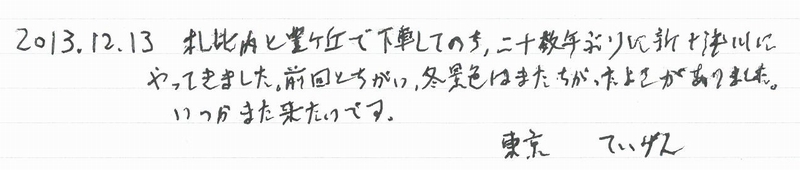 2013.12.13 札比内と豊ヶ丘で下車してのち、二十数年ぶりに新十津川に
やってきました。前回とちがい、冬景色はまたちがったよさがありました。
いつかまた来たいです。
東京 ていげん